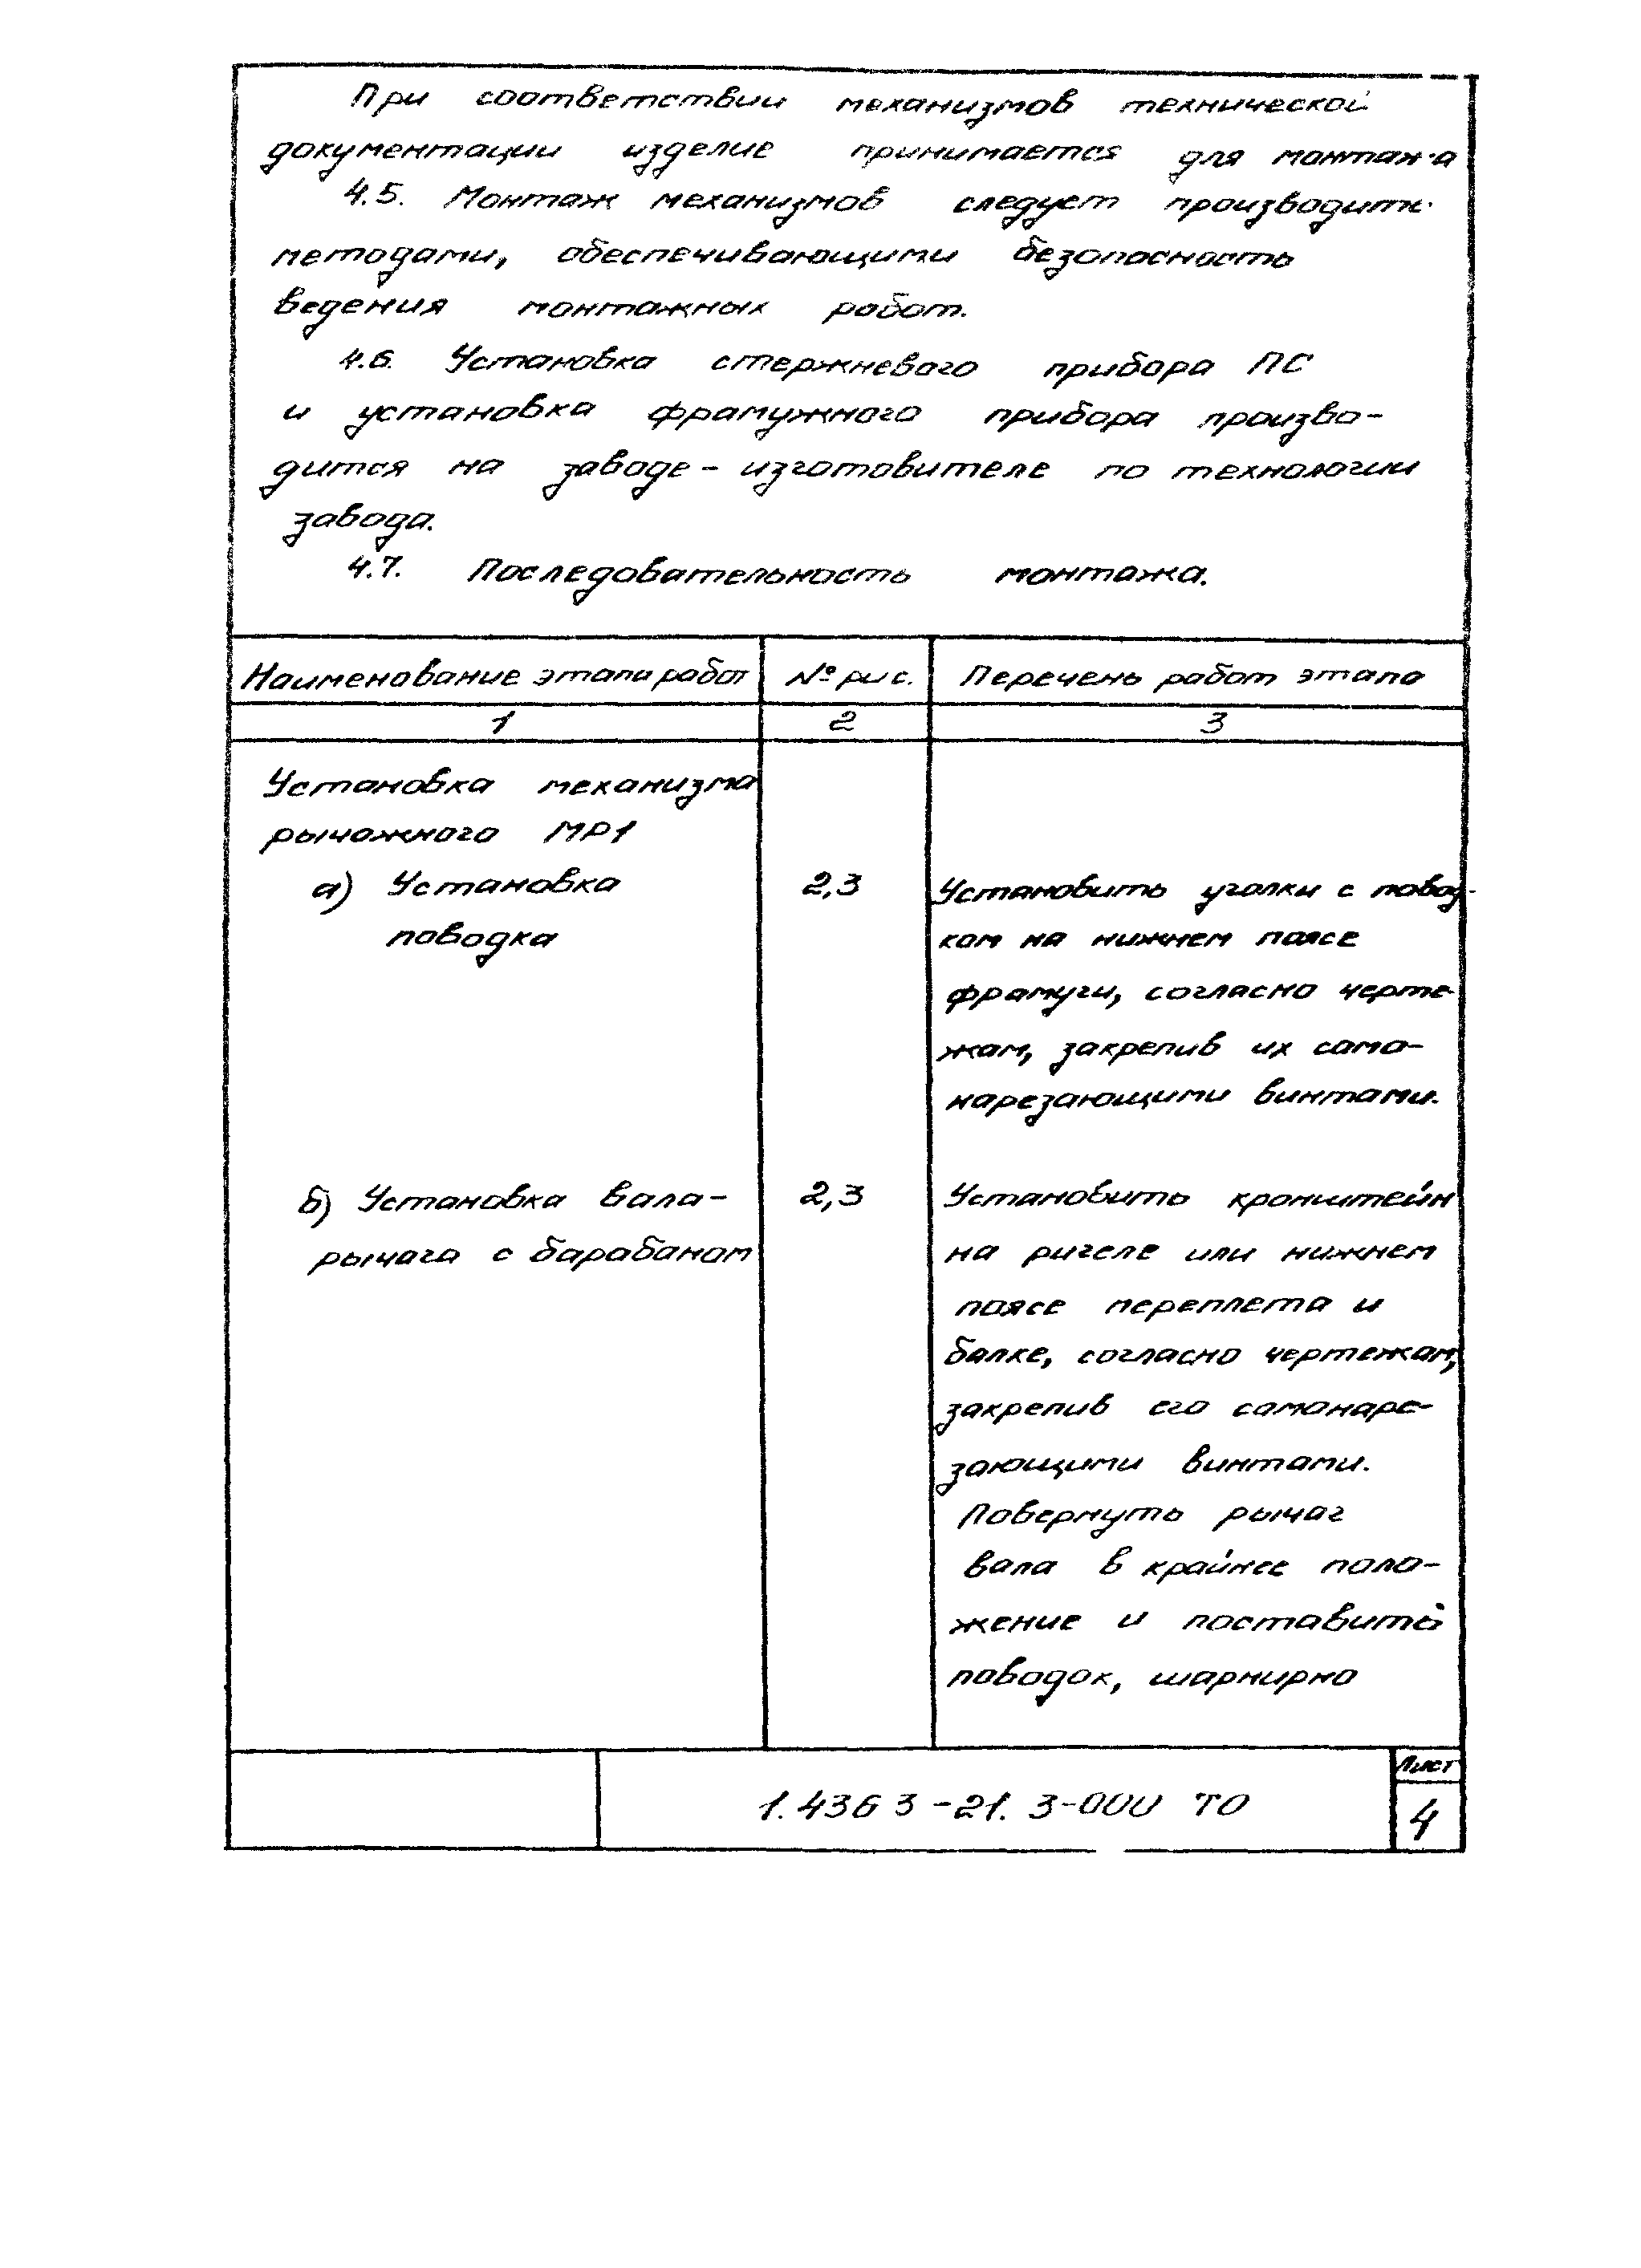 При соответствии механизмов технической
документации изделие принимается для монтажа
4.5. Монтаж механизмов следует производить
методами, обеспечивающими безопасность
ведения монтажных работ.
4.6. Установка стержневого прибора ПС
и установка фрамужного прибора произво-
дится на заводе-изготовителе по технологии
завода.
4.7. Последовательность монтажа.
Наименование этапа работ № рис. Перечень работ этапа
1 2 3
Установка механизма
рычажного МР1
а) Установка 2,3 Установить уголки с повод-
поводка ком на нижнем поясе
фрамуги, согласно черте-
жам, закрепив их само-
нарезающими винтами.
б) Установка вала- 2,3 Установить кронштейн
рычага с барабаном на ригеле или нижнем
поясе переплета и
балке, согласно чертежам,
закрепив его самонаре-
зающими винтами.
Повернуть рычаг
вала в крайнее поло-
жение и поставить
поводок, шарнирно
Лист
1.436 3-21. 3-000 ТО
4